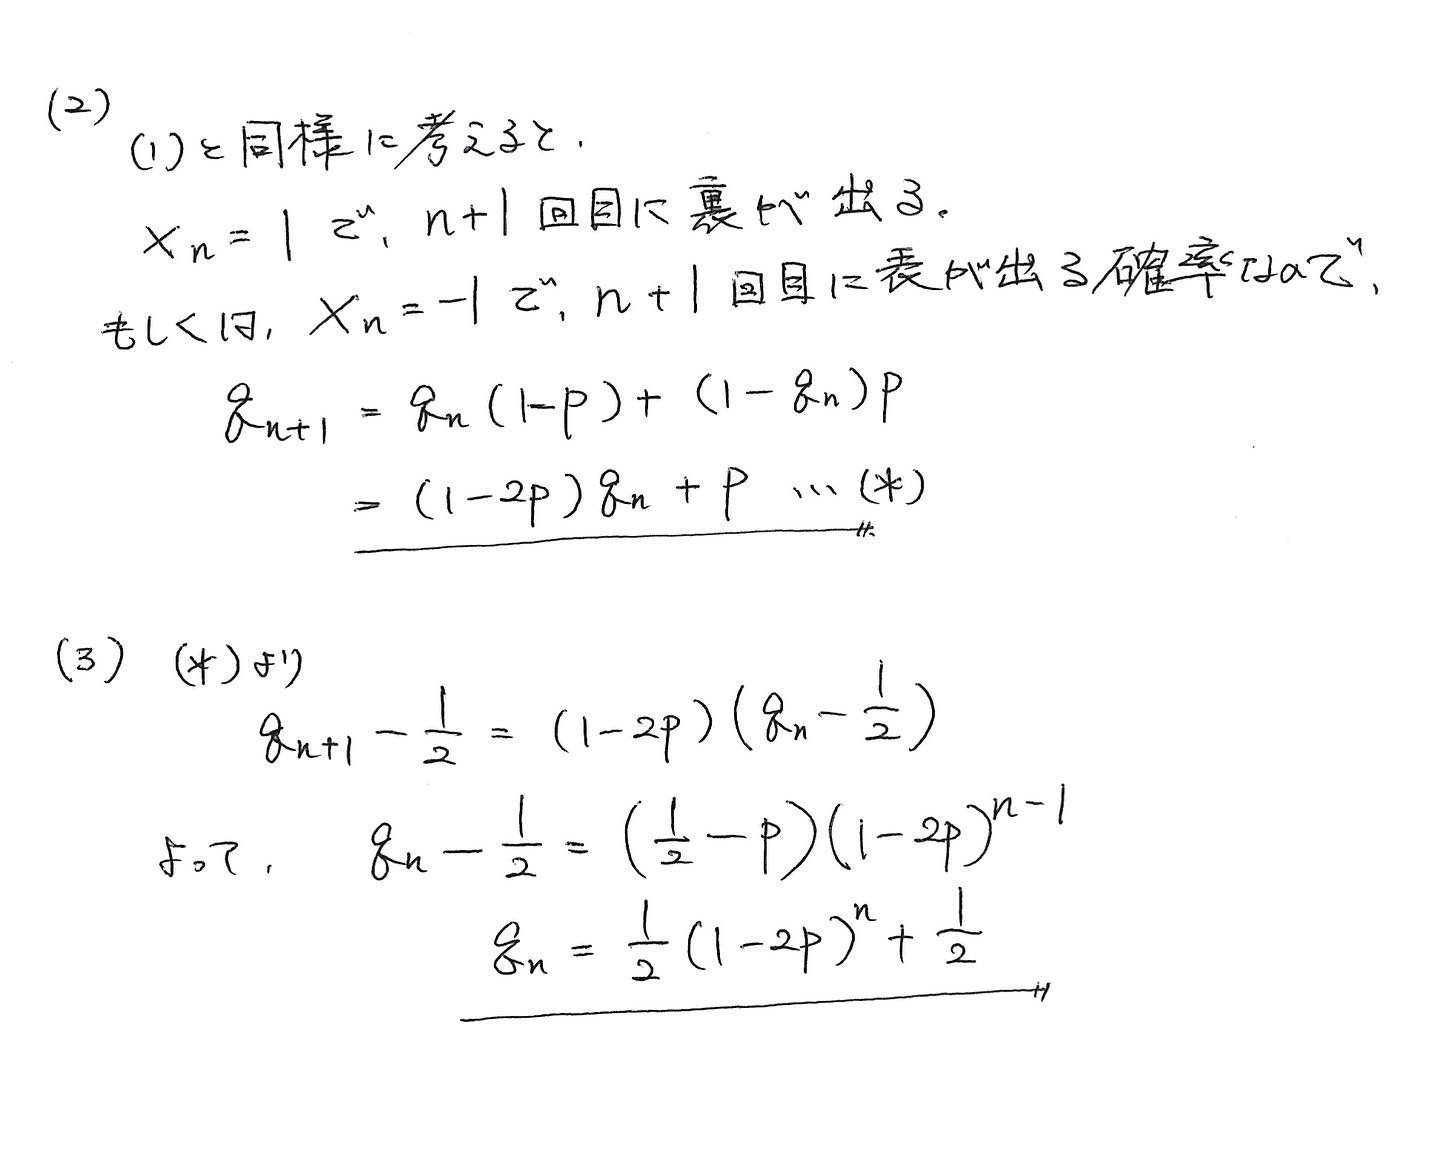 (2)
(1)と同様に考えると.
Xn = 1 で, n+1 回目に裏が出る.
もしくは, Xn = -1 で, n+1 回目に表が出る確率なので,
qn+1 = qn(1-p) + (1-qn)p
= (1-2p)qn + p …(*)
(3) (*)より
qn+1 - 1/2 = (1-2p)(qn - 1/2)
よって, qn - 1/2 = (1/2 - p)(1-2p)^n-1
qn = 1/2(1-2p)^n + 1/2